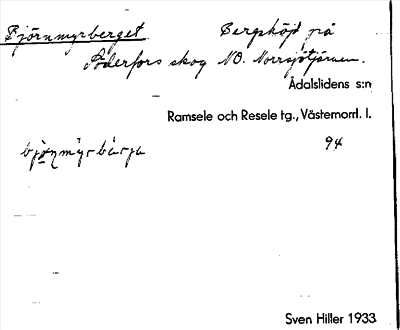 Björnmyrberget Berghöjd på
Söderfors skog NO. Norrsjötjärnen.
Ådalslidens s:n
Ramsele och Resele tg., Västernorrl. l.
94
Sven Hiller 1933